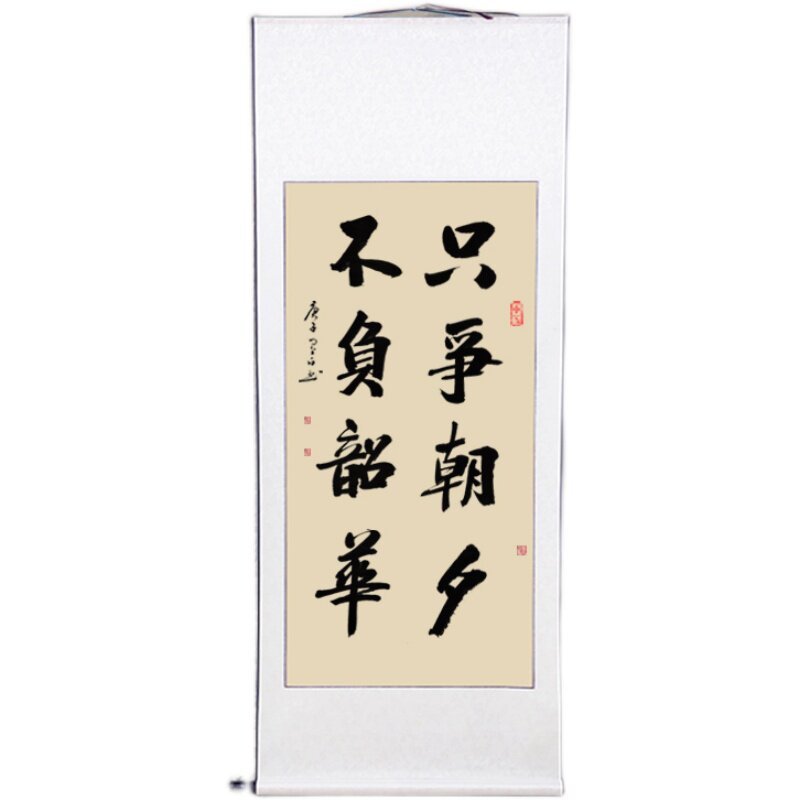 只爭朝夕
不負韶華
庚子